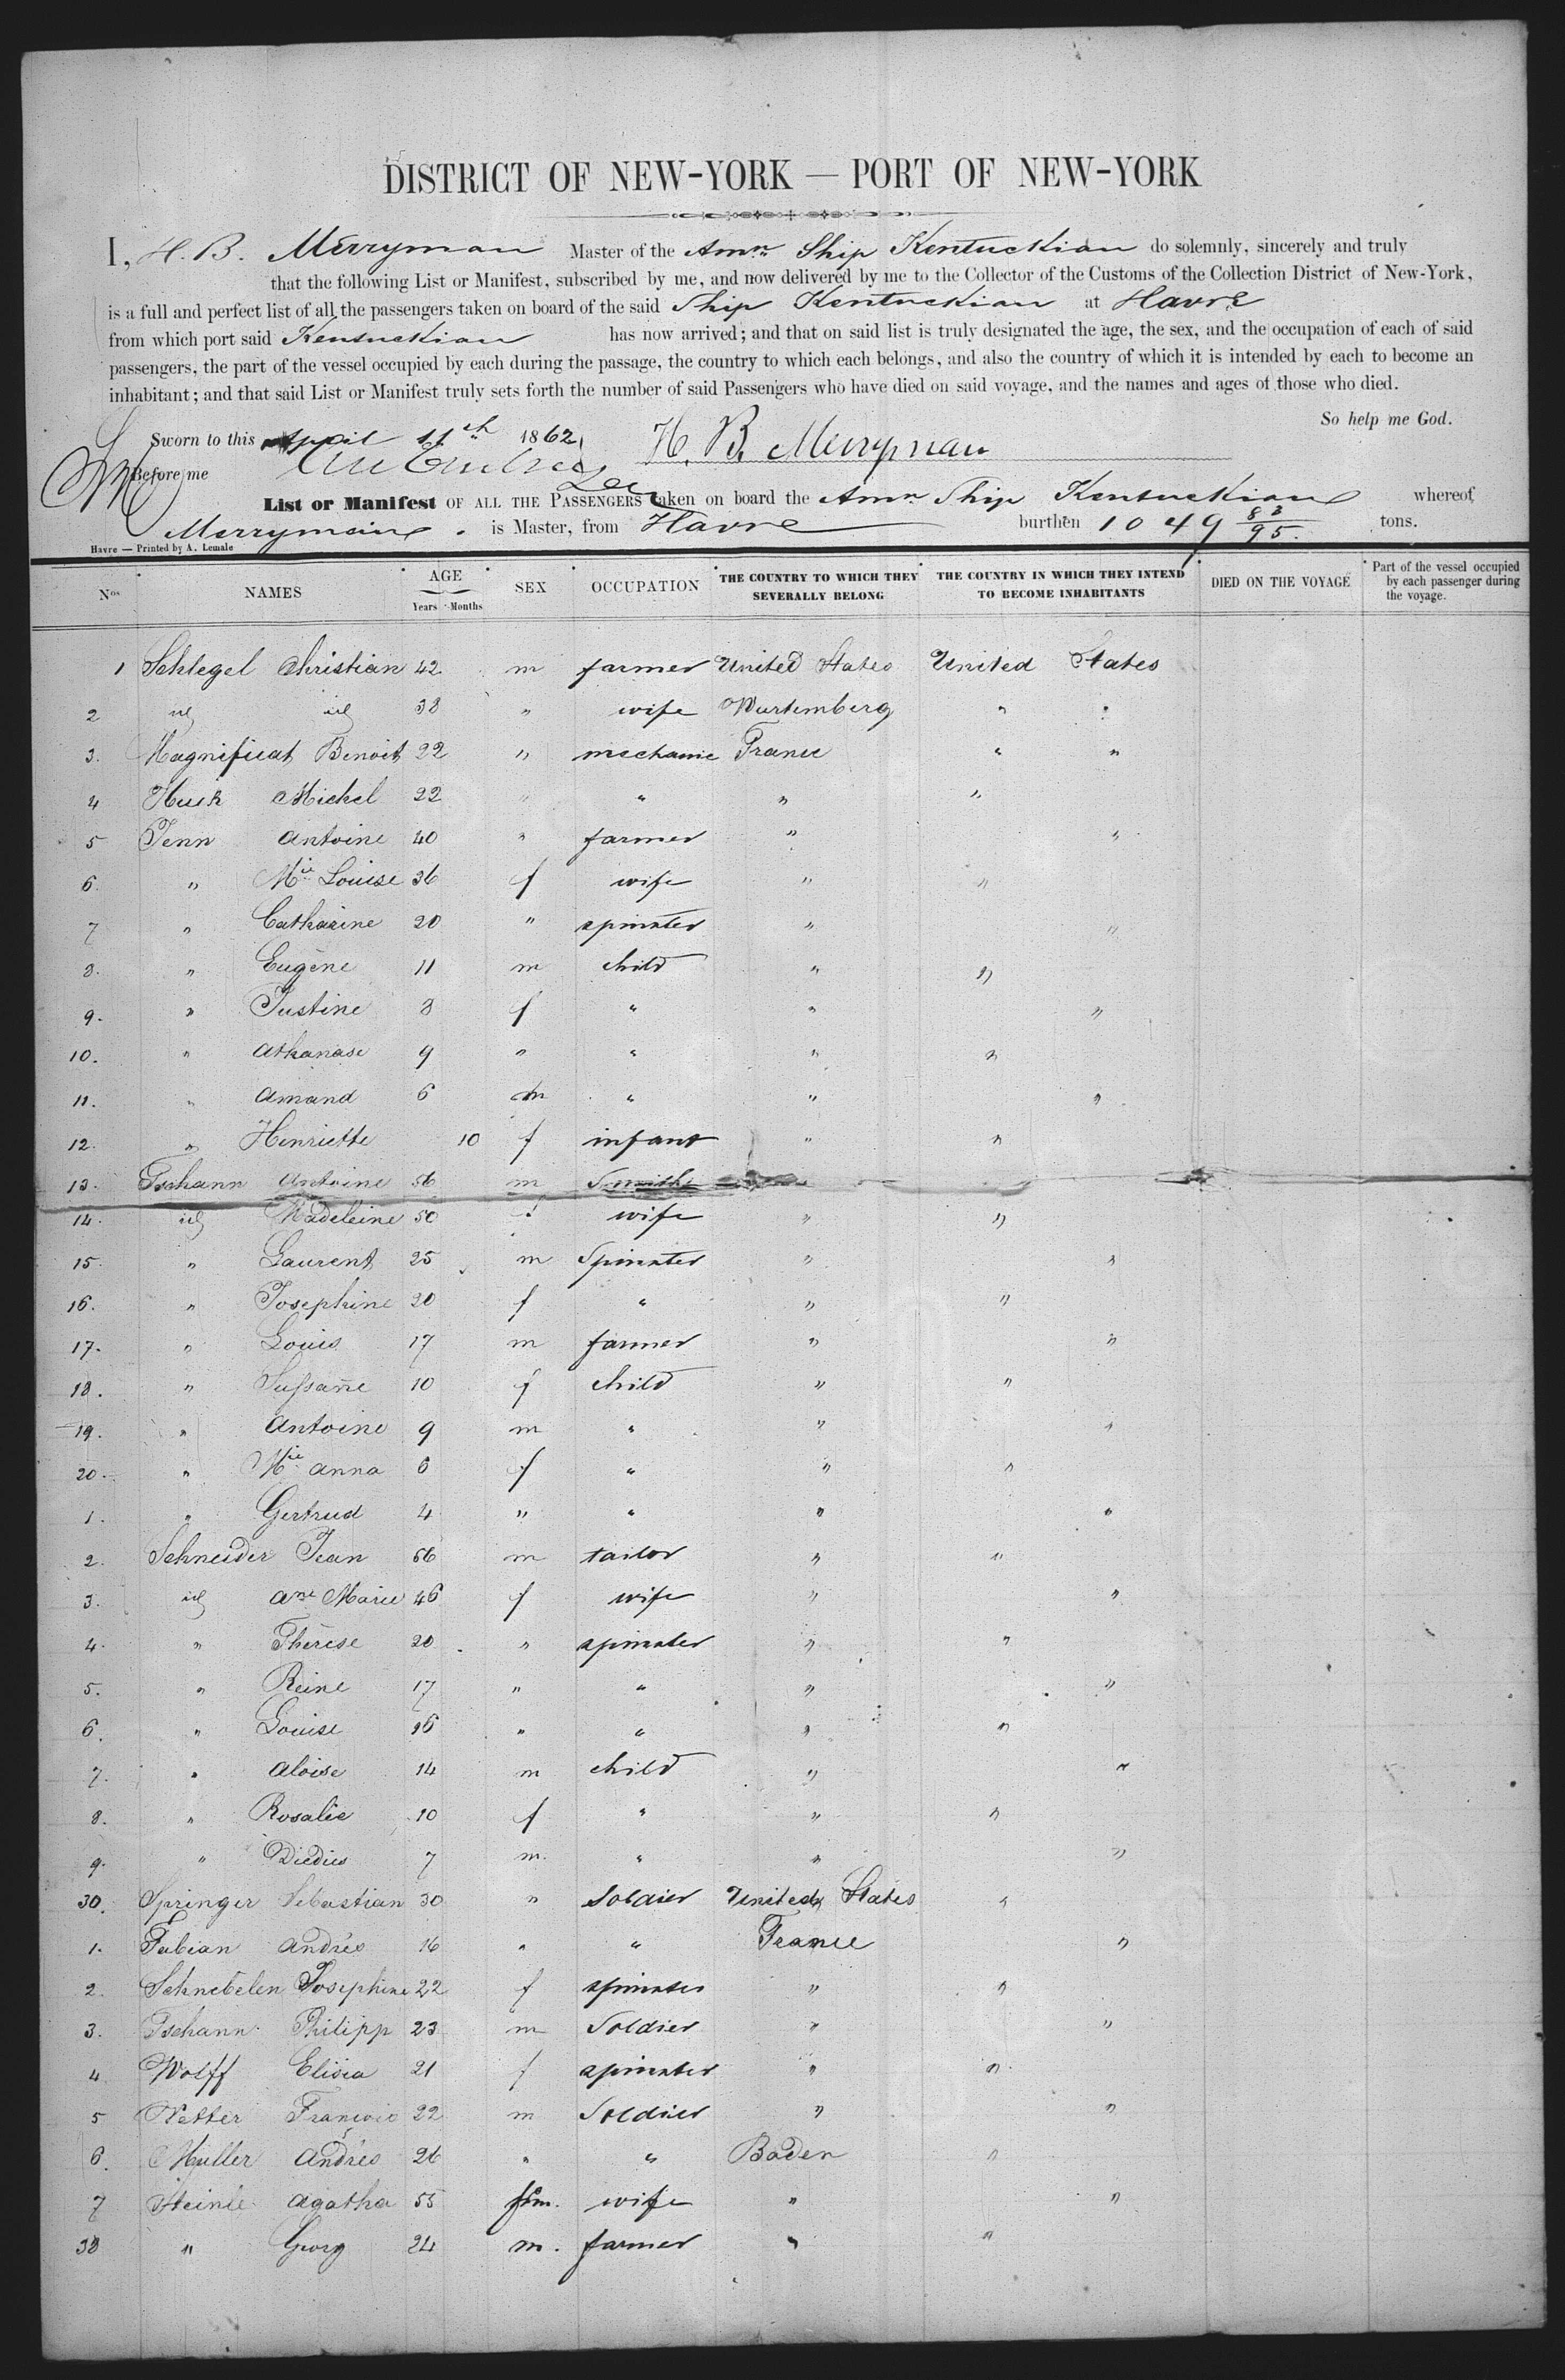 DISTRICT OF NEW-YORK — PORT OF NEW-YORK
I, H. B. Merryman Master of the Amn Ship Kentuckian do solemnly, sincerely and truly
that the following List or Manifest, subscribed by me, and now delivered by me to the Collector of the Customs of the Collection District of New-York,
is a full and perfect list of all the passengers taken on board of the said Ship Kentuckian at Havre
from which port said Kentuckian has now arrived; and that on said list is truly designated the age, the sex, and the occupation of each of said
passengers, the part of the vessel occupied by each during the passage, the country to which each belongs, and also the country of which it is intended by each to become an
inhabitant; and that said List or Manifest truly sets forth the number of said Passengers who have died on said voyage, and the names and ages of those who died.
So help me God.
Sworn to this April 11th 1862
H. B. Merryman
Before me
List or Manifest OF ALL THE PASSENGERS taken on board the Amn Ship Kentuckian whereof
Merrymann is Master, from Havre burthen 1049 83/95 tons.
Havre — Printed by A. Lemale
Nos NAMES AGE Years Months SEX OCCUPATION THE COUNTRY TO WHICH THEY SEVERALLY BELONG THE COUNTRY IN WHICH THEY INTEND TO BECOME INHABITANTS DIED ON THE VOYAGE Part of the vessel occupied by each passenger during the voyage.
1 Schlegel Christian 42 m farmer United States United States
2 id id 38 " wife Wurtemberg " "
3. Magnificat Benoit 22 " mechanic France " "
4 Huck Michel 22 " " " "
5 Jenn Antoine 40 " farmer " "
6. " Mie Louise 36 f wife " "
7 " Catharine 20 " spinster " "
8. " Eugène 11 m child " "
9. " Justine 8 f " " "
10. " Athanase 9 " " " "
11. " Amand 6 m " " "
12. " Henriette 10 f infant " "
13. Tschann Antoine 56 m Smith
14. id Madeleine 50 f wife " "
15. " Laurent 25 m Spinster " "
16. " Josephine 20 f " " "
17. " Louis 17 m farmer " "
18. " Sussane 10 f child " "
19. " Antoine 9 m " " "
20. " Mie Anna 6 f " " "
1. " Gertrud 4 " " " "
2. Schneider Jean 56 m tailor " "
3. id Ane Marie 46 f wife " "
4. " Thérèse 20 " spinster " "
5. " Reine 17 " " " "
6. " Louise 16 " " " "
7. " Aloise 14 m child " "
8. " Rosalie 10 f " " "
9. " 7 m. " " "
30. Springer Sebastian 30 " Soldier United States "
1. Fabian Andrés 16 " " France "
2. Schnebelen Josephine 22 f spinster " "
3. Tschann Philipp 23 m Soldier " "
4 Wolff Elisia 21 f spinster " "
5 Netter François 22 m Soldier " "
6. Müller Andrés 26 " " Baden "
7 Heinle Agatha 55 fem. wife " "
38 " Georg 24 m. farmer " "